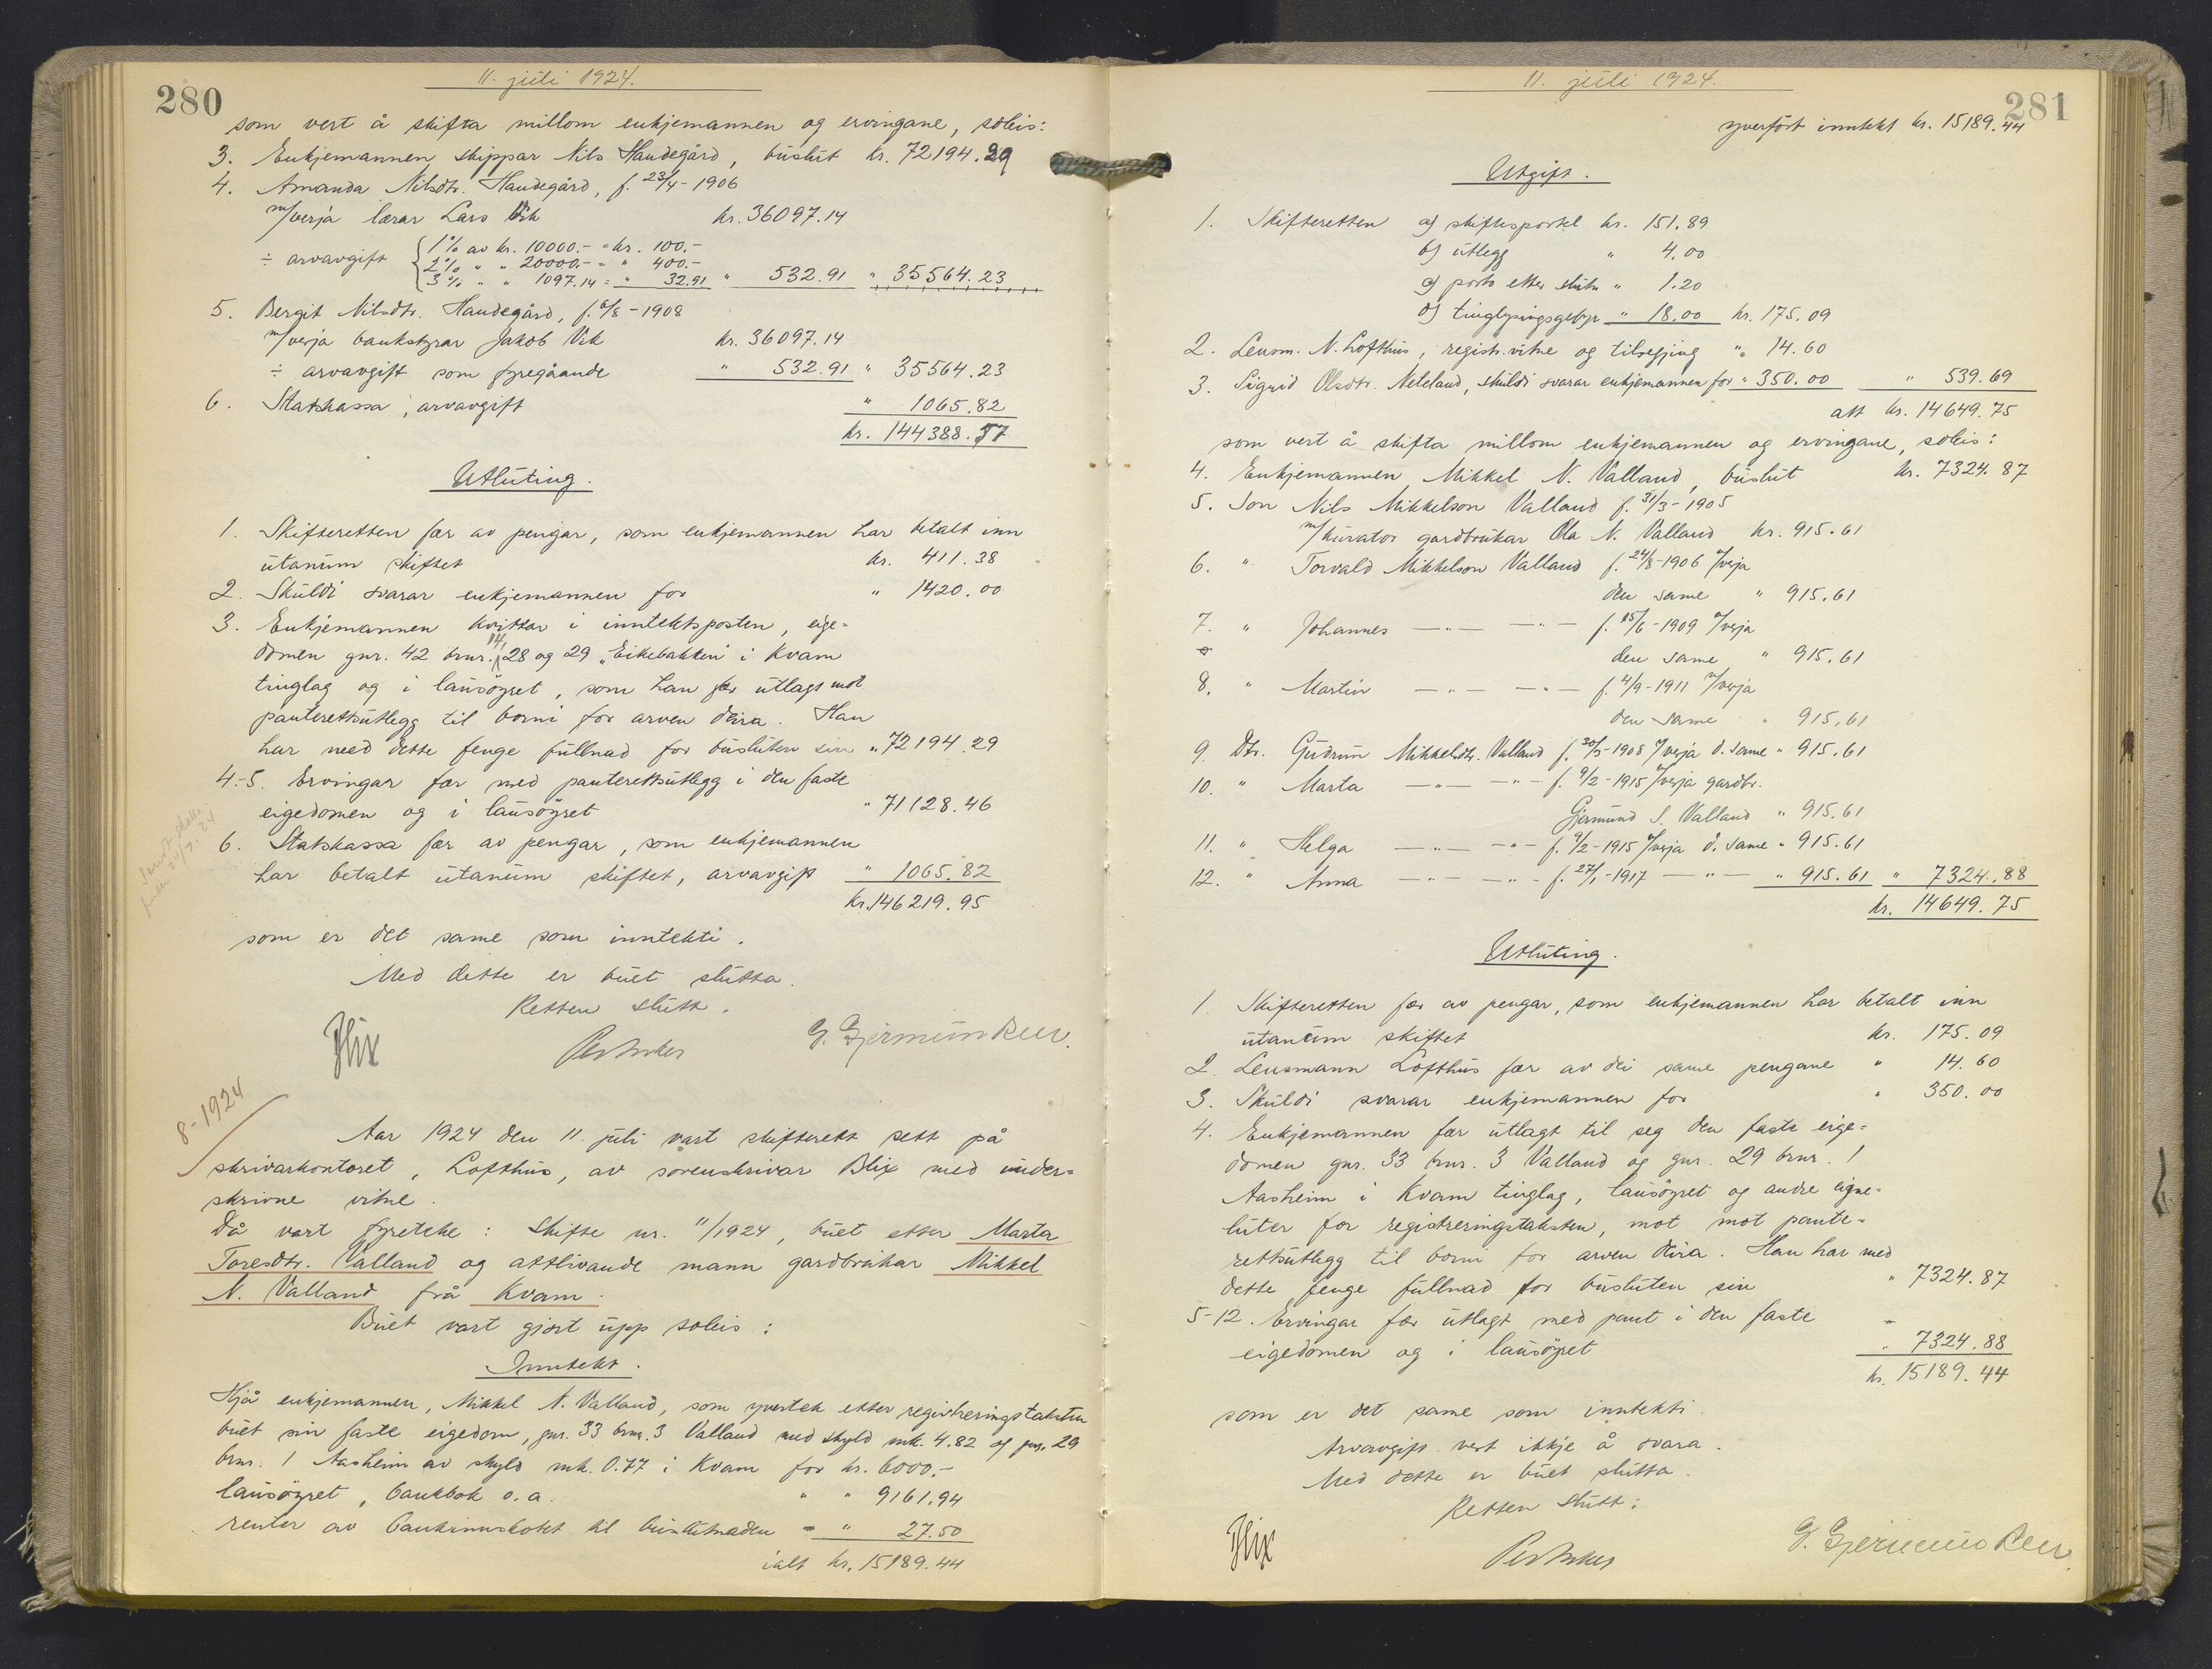 280
11. juli 1924.
som vert å skifta millom enkjemannen og ervingane, soleis:
3. Enkjemannen, skippar Nils Haudegård, buslut kr. 72194.29
4. Amanda Nilsdtr. Haudegård, f. 23/4-1906
m/verja lærar Lars Vik kr. 36097.14
÷ arvavgift { 1% av kr. 10000.- = kr. 100.-
2% " " 20000.- = " 400.-
3% " " 1097.14 = " 32.91 " 532.91 " 35564.23
5. Bergit Nilsdtr. Haudegård, f. 6/8-1908
m/verja bankstyrar Jakob Vik kr. 36097.14
÷ arvavgift som fyregåande " 532.91 " 35564.23
6. Statskassa, arvavgift " 1065.82
kr. 144388.57
Utluting.
1. Skifteretten fær av pengar, som enkjemannen har betalt inn
utanum skiftet kr. 411.38
2. Skuldi svarar enkjemannen for " 1420.00
3. Enkjemannen kvittar i inntektsposten, eige-
domen gnr. 42 bnr. 14, 28 og 29 „Eikebakken" i Kvam
tinglag og i lausöyret, som han fær utlagt mot
panterettsutlegg til borni for arven deira. Han
har med dette fenge fullnad for busluten sin " 72194.29
4-5. Ervingar fær med panterettsutlegg i den faste
eigedomen og i lausöyret " 71128.46
6. Statskassa fær av pengar, som enkjemannen
har betalt utanum skiftet, arvavgift " 1065.82
kr. 146219.95
som er det same som inntekti.
Med dette er buet slutta.
Retten slutt.
Blix
G. Gjermundsen.
8-1924
Aar 1924 den 11. juli vart skifterett sett på
skrivarkontoret, Lofthus, av sorenskrivar Blix med under-
skrivne vitne.
Då vart fyreteke: Skifte nr. 11/1924, buet etter Marta
Toresdtr. Valland og attlivande mann gardbrukar Mikkel
N. Valland frå Kvam.
Buet vart gjort upp soleis:
Inntekt.
Hjå enkjemannen, Mikkel N. Valland, som yvertek etter registreringstaksten
buet sin faste eigedom, gnr. 33 bnr. 3 Valland med skyld mk. 4.82 og gnr. 29
bnr. 1 Aasheim av skyld mk. 0.77 i Kvam for kr. 6000.-
lausöyret, bankbok o.a. " " 9161.94
renter av bankinnskotet til buslutnaden = " 27.50
ialt kr. 15189.44
281
11. juli 1924.
yverfört inntekt kr. 15189.44
Utgift.
1. Skifteretten a) skiftesportel kr. 151.89
b) utlegg " 4.00
c) porto etter slutn " 1.20
d) tinglysingsgebyr " 18.00 kr. 175.09
2. Lensm. N. Lofthus, registr.vitne og tilsegjing " 14.60
3. Sigrid Olsdtr. Neteland, skuldi svarar enkjemannen for " 350.00 " 539.69
att kr. 14649.75
som vert å skifta millom enkjemannen og ervingane, soleis:
4. Enkjemannen Mikkel N. Valland, buslut kr. 7324.87
5. Son Nils Mikkelson Valland f. 31/3-1905
m/kurator gardbrukar Ola N. Valland kr. 915.61
6. " Torvald Mikkelson Valland f. 24/8-1906 m/verja
den same " 915.61
7. " Johannes —"— —"— f. 15/6-1909 m/verja
den same " 915.61
8. " Martin —"— —"— f. 4/9-1911 m/verja
den same " 915.61
9. Dtr. Gudrun Mikkelsdtr. Valland f. 30/5-1908 m/verja d. same " 915.61
10. " Marta —"— —"— f. 9/2-1915 m/verja gardbr.
Gjermund S. Valland " 915.61
11. " Helga —"— —"— f. 9/2-1915 m/verja d. same " 915.61
12. " Anna —"— —"— f. 27/1-1917 —"— " 915.61 " 7324.88
kr. 14649.75
Utluting.
1. Skifteretten fær av pengar, som enkjemannen har betalt inn
utanum skiftet kr. 175.09
2. Lensmann Lofthus fær av dei same pengane " 14.60
3. Skuldi svarar enkjemannen for " 350.00
4. Enkjemannen fær utlagt til seg den faste eige-
domen gnr. 33 bnr. 3 Valland og gnr. 29 bnr. 1
Aasheim i Kvam tinglag, lausöyret og andre eigne-
luter for registreringstaksten, mot mot pante-
rettsutlegg til borni for arven deira. Han har med
dette fenge fullnad for busluten sin " 7324.87
5-12. Ervingar fær utlagt med pant i den faste
eigedomen og i lausöyret " 7324.88
kr. 15189.44
som er det same som inntekti.
Arvavgift vert ikkje å svara.
Med dette er buet slutta.
Retten slutt:
Blix
G. Gjermundsen.